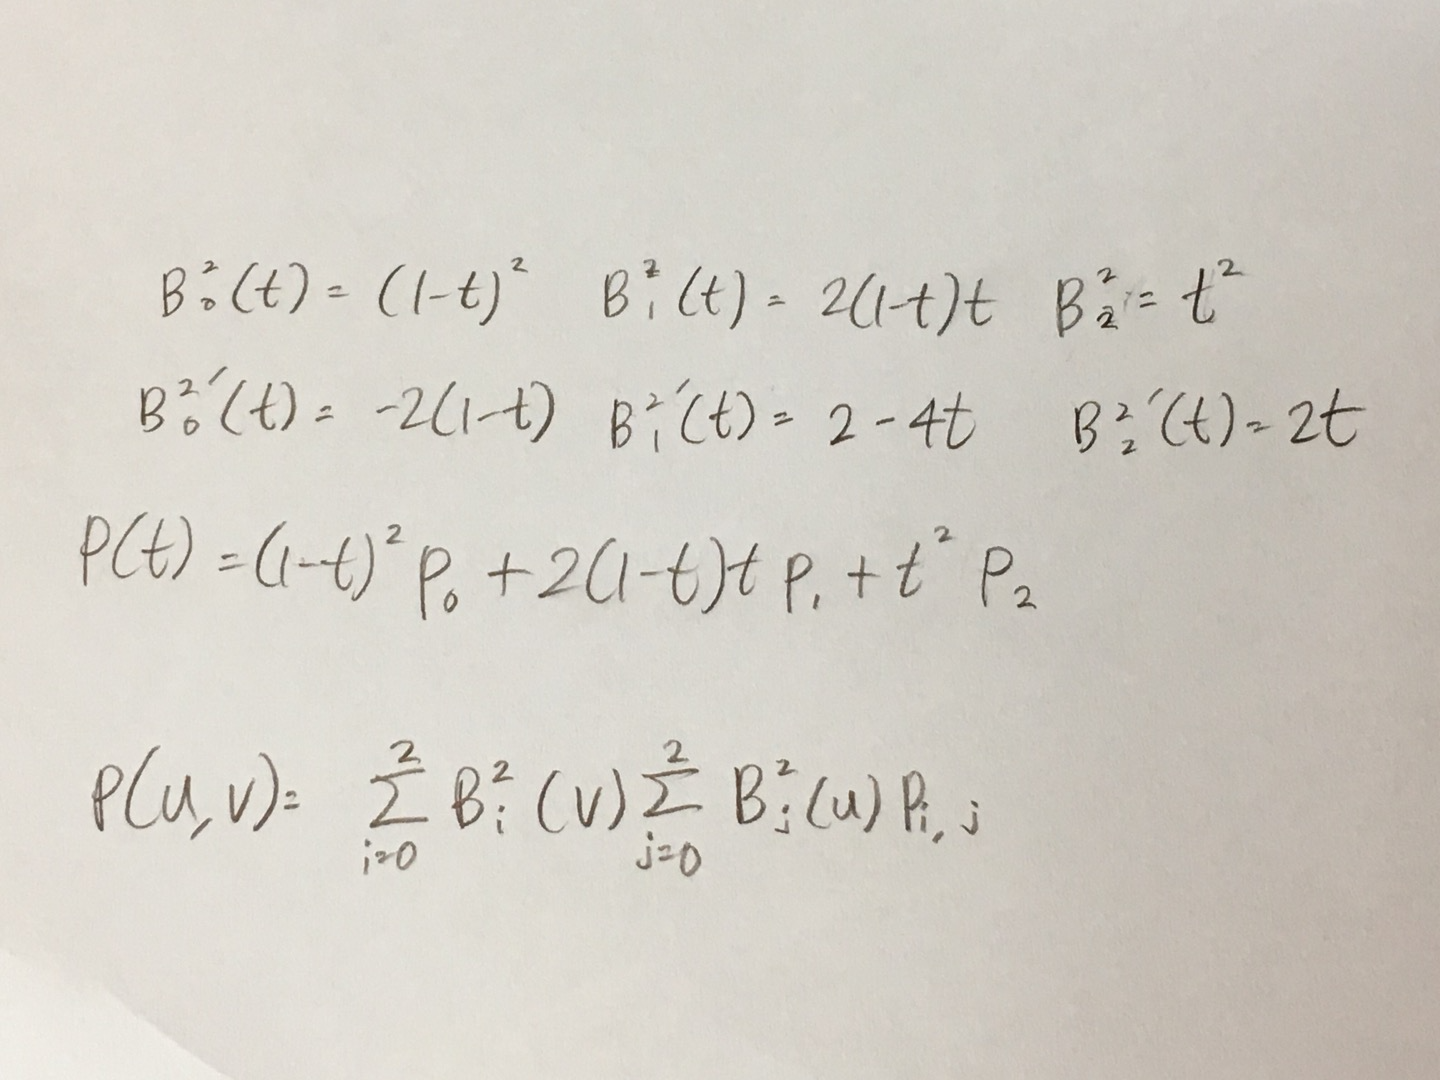 B₀²(t) = (1-t)² B₁²(t) = 2(1-t)t B₂² = t²
B₀²′(t) = -2(1-t) B₁²′(t) = 2-4t B₂²′(t) = 2t
P(t) = (1-t)² P₀ + 2(1-t)t P₁ + t² P₂
P(u,v) = ∑_{i=0}^{2} B_i²(v) ∑_{j=0}^{2} B_j²(u) P_{i,j}